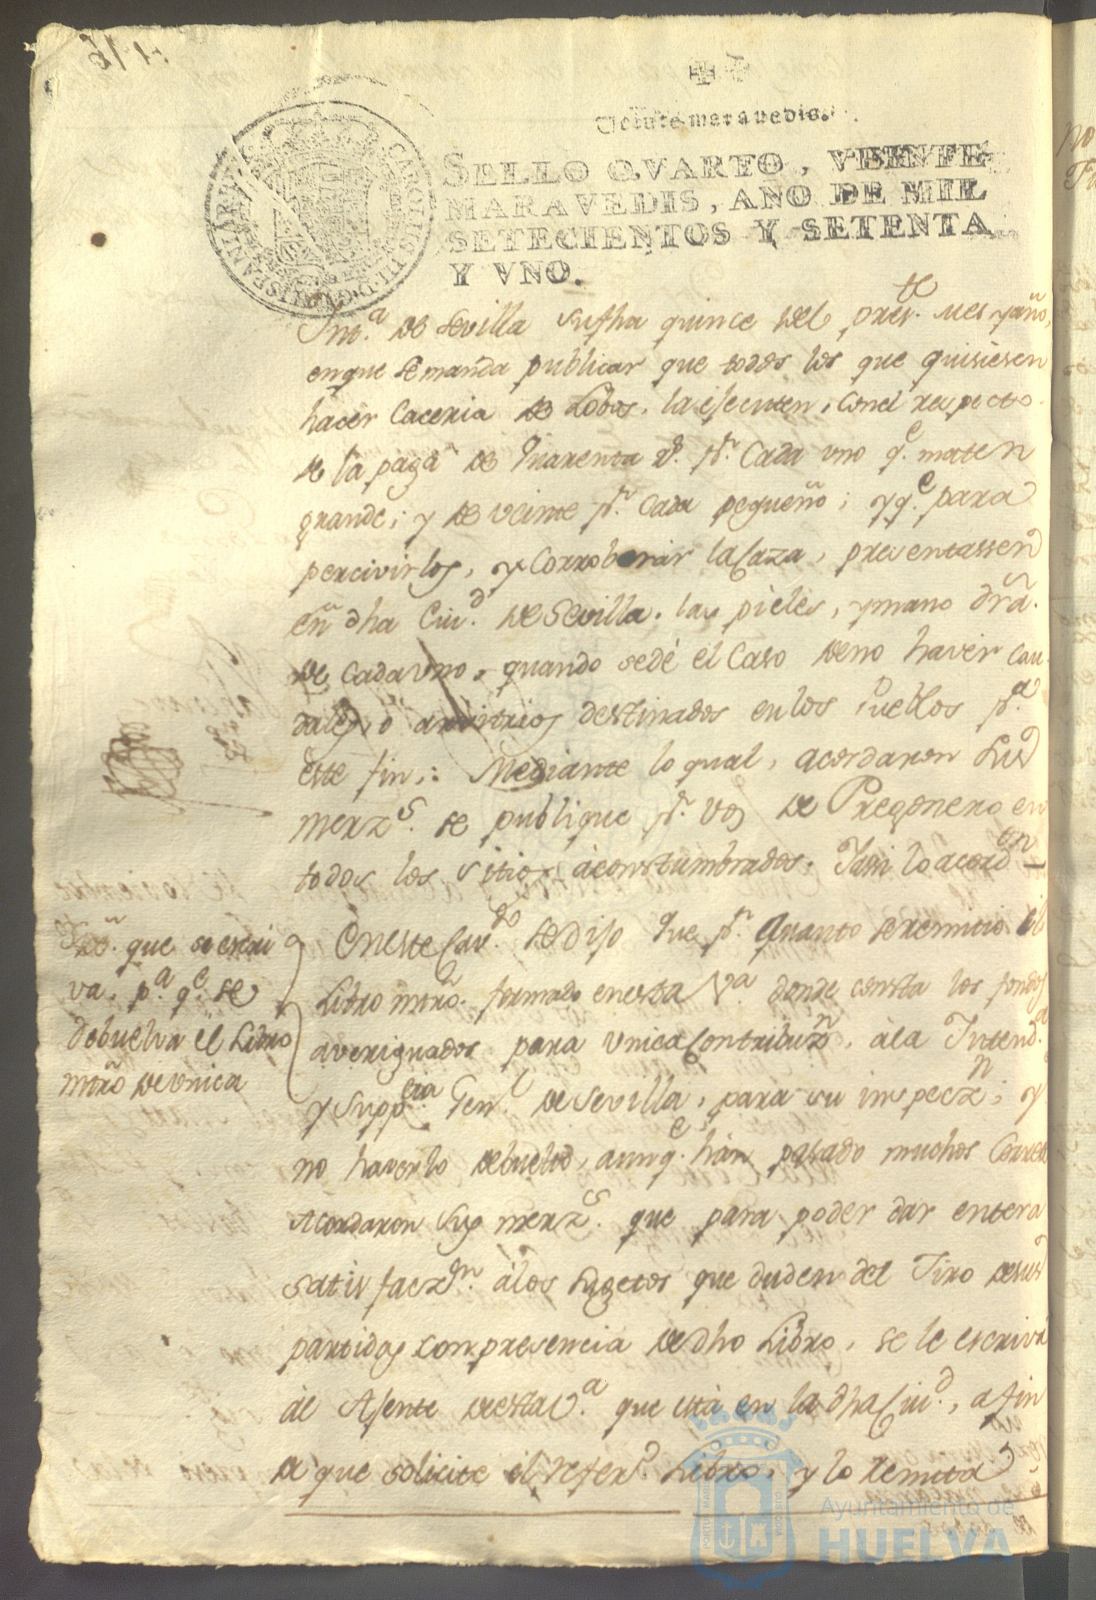 Veinte maravedis.
SELLO QVARTO, VEINTE
MARAVEDIS, AÑO DE MIL
SETECIENTOS Y SETENTA
Y VNO.
CAROLUS III D G HISPANIAR REX
Int.ª de Sevilla su fha quince del pres.te mes y año,
en que se manda publicar que todos los que quisiesen
hacer Caceria de Lobos, la ejecuten, con el respecto
de la paga de quarenta r.s p.r Cada uno q.e maten
grande; y de veinte p.r Cada pequeño; y q.e para
percivirlos, y Corroborar la Caza, presentassen
en dha Ciu.d de Sevilla, las pieles, y mano dra.
de cada uno, quando se dé el Caso de no haver cau-
dales, o arvitrios destinados en los Pueblos p.a
este fin; Mediante lo qual, acordaron sus
merz.s se publique p.r voz de Pregonero en
todos los sitios acostumbrados. Y assi lo acord.on
En este Cav.do se dijo que p.r quanto se remitio el
Libro mro. formado en esta V.a donde consta los fondos
averiguados para Unica Contribuz.n, a la Intend.a
y Supp.cia Gen.l de Sevilla, para su inspecz.n; y
no haverlo debuelto, aunq.e han pasado muchos Correos
Acordaron sus merz.s que para poder dar entera
satisfacz.n a los sugetos que duden del Tiro de sus
partidas con presencia de dho Libro, se le escriva
al Agente de esta V.a que está en la dha Ciu.d, a fin
de que solicite el refer.do Libro, y lo remita
que se escri
va, p.a q.e se
debuelva el Libro
mro de Unica
Ayuntamiento de
HUELVA